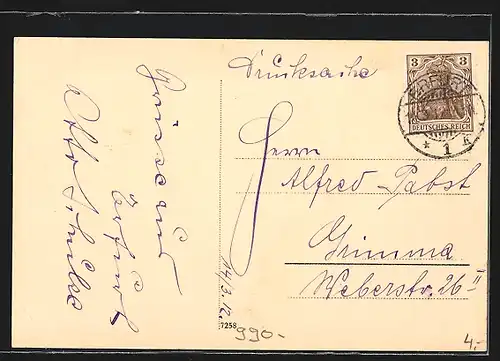 Grüsse aus
Erfurt
Otto Schulze
Drucksache
3 3
DEUTSCHES REICH
* 1 k
Herrn
Alfred Pabst
Grimma
Weberstr. 26 II
14/3.12.
7258
990-
4.-